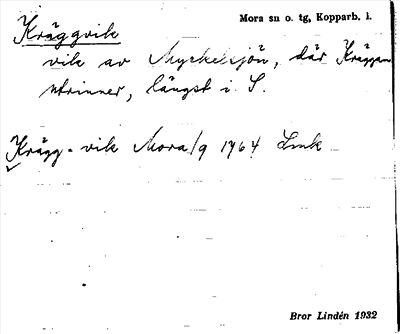 Mora sn o. tg, Kopparb. l.
Kräggvik
vik av Myckelsjön, där Kräggan
utrinner, längst i S.
Krägg-vik Mora/g 1764 Lmk
Bror Lindén 1932